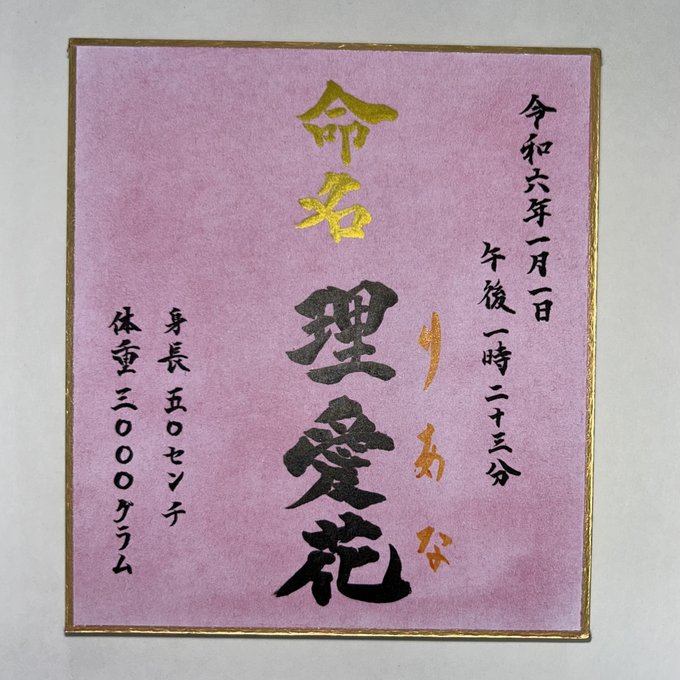 令和六年一月一日
午後一時二十三分
命名
理愛花
りあな
身長五〇センチ
体重三〇〇〇グラム